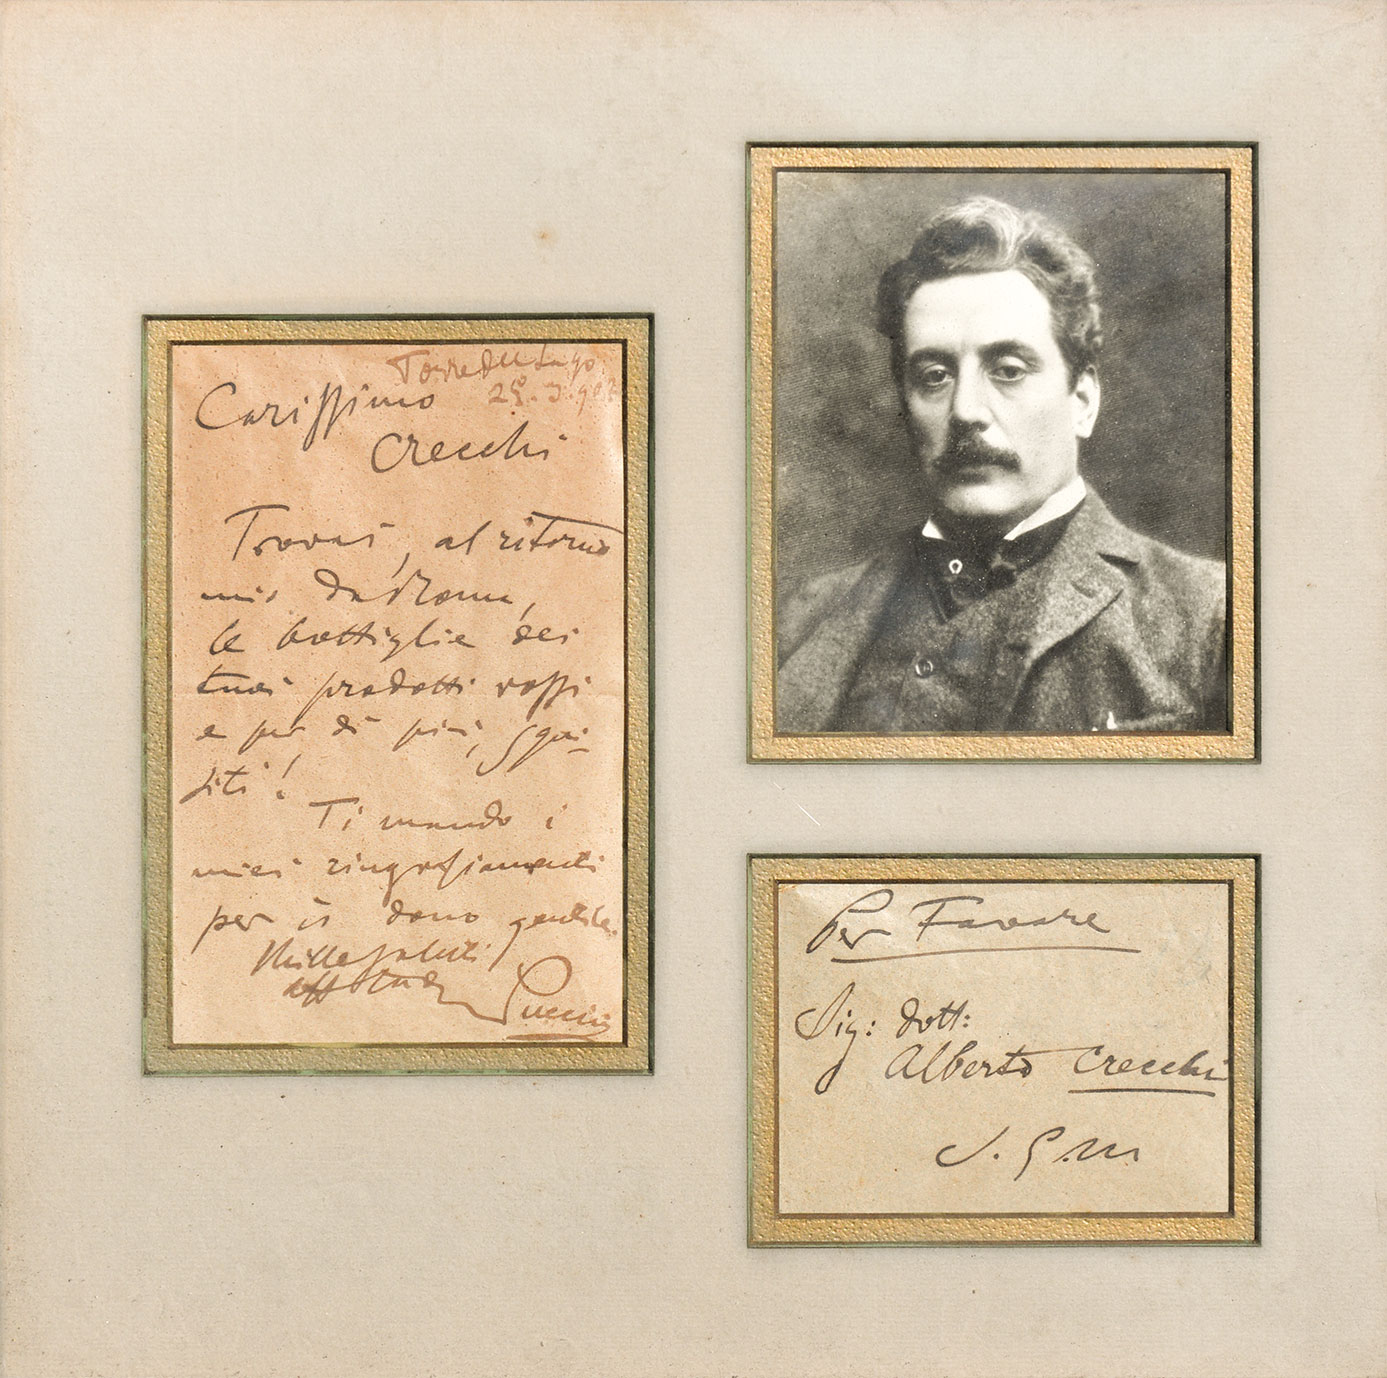 Torre del Lago
Carissimo
Crecchi
Trovai, al ritorno
mio da Roma,
le bottiglie dei
tuoi prodotti rossi
e per di più, squi-
siti!
Ti mando i
miei ringraziamenti
per il dono gentile.
Mille saluti
Puccini
Per Favore
Sig: dott:
Alberto Crecchi